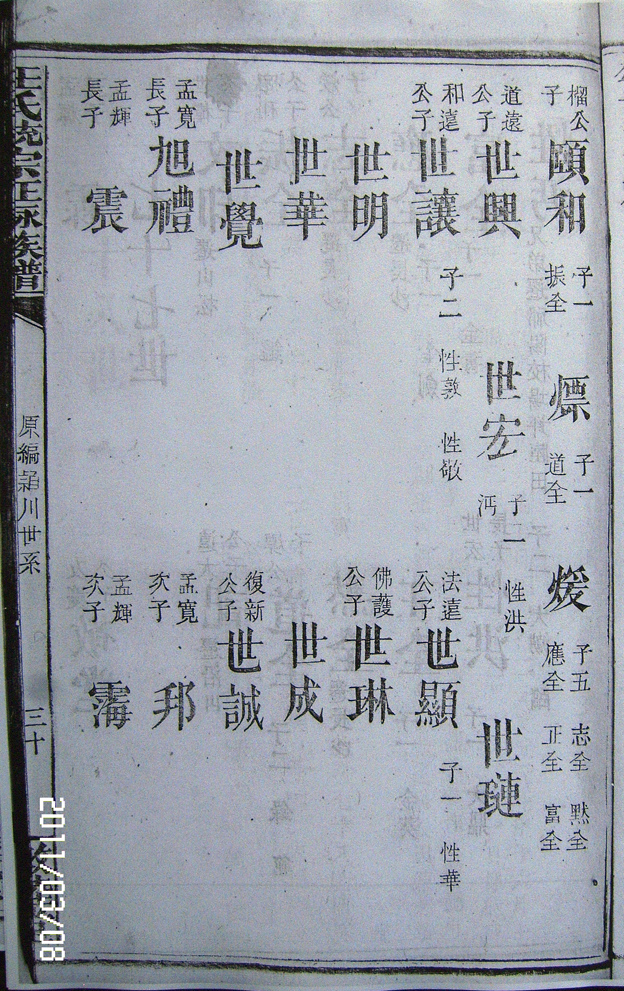 榴公子 頤和 子一 振全 㷸 子一 道全 煖 子五 志全 默全 應全 正全 富全
道遠公子 世興 世宏 子一 性洪 沔 世璉
和遠公子 世讓 子二 性敦 性敬 法遠公子 世顯 子一 性華
世明 佛護公子 世琳
世華 世成
世覺 復新公子 世誠
孟寬長子 旭禮 孟寬次子 邦
孟輝長子 震 孟輝次子 霱
汪氏統宗正脉族譜
原編 川世系
三十
2011/03/08